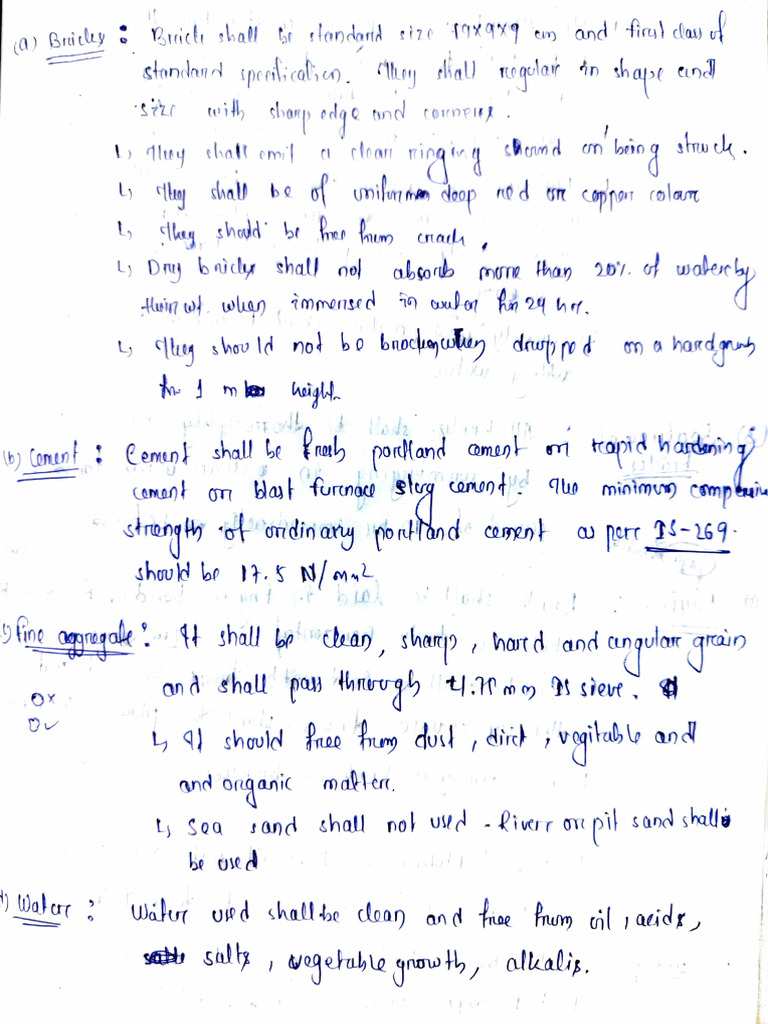 (a) Bricks : Brick shall be standard size 19x9x9 cm and first class of
standard specification. They shall regular in shape and
size with sharp edge and corners.
↳ They shall emit a clear ringing shound on being struck.
↳ They shall be of uniform deep red or copper colour
↳ They should be free from crack.
↳ Dry bricks shall not absorb more than 20% of water by
their wt. when immersed in water for 24 hr.
↳ They should not be brocken when dropped on a hard
for 1 m height.
(b) Cement : Cement shall be fresh portland cement or rapid hardening
cement or blast furnace slag cement. The minimum
strength of ordinary portland cement as per IS-269.
should be 17.5 N/mm2
) Fine aggregate : It shall be clean, sharp, hard and angular grain
and shall pass through 4.75 mm IS sieve.
O x
O ✓
↳ It should free from dust, dirt, vegitable and
and organic matter.
↳ Sea sand shall not used - River or pit sand shall
be used
) Water : Water used shall be clean and free from oil, acids,
salts, vegetable growth, alkalis.